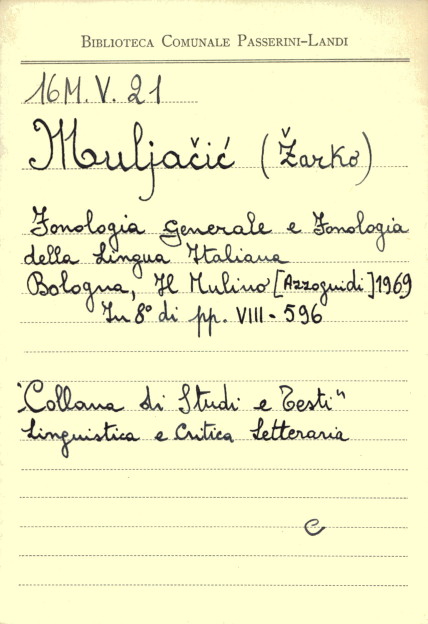 BIBLIOTECA COMUNALE PASSERINI-LANDI
16 M. V. 21
Muljačić (Žarko)
Fonologia Generale e Fonologia
della Lingua Italiana
Bologna, Il Mulino [Azzoguidi] 1969
In 8° di pp. VIII - 596
"Collana di Studi e Testi"
Linguistica e Critica Letteraria
C